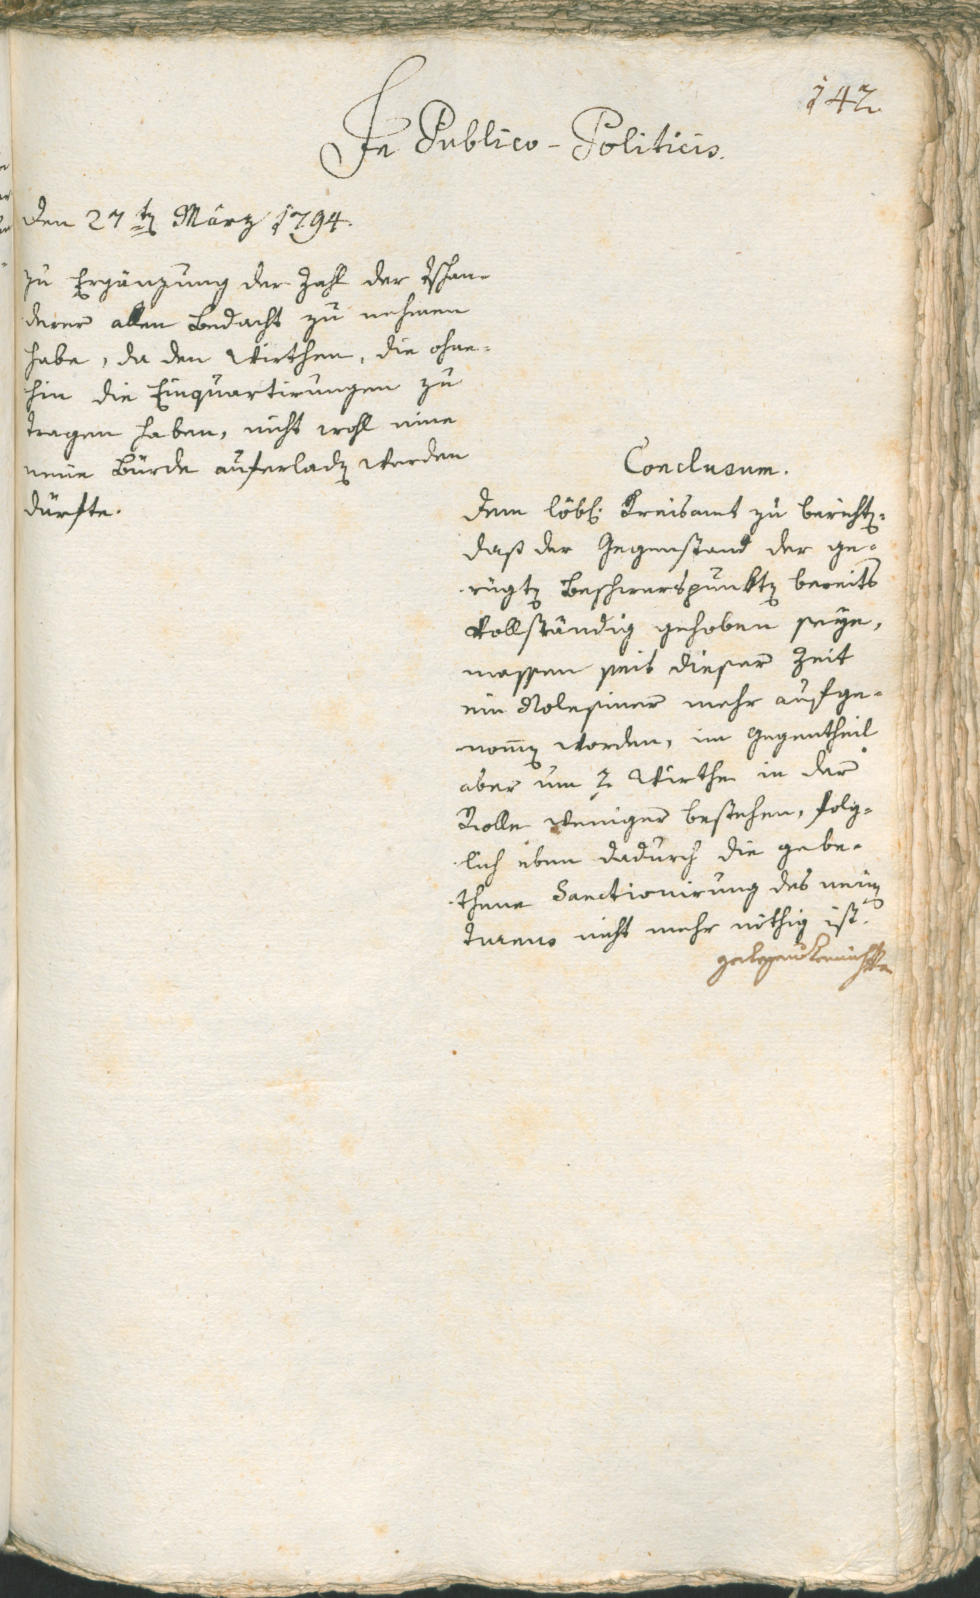 142
In Publico-Politicis.
den 27tn März 1794.
zu Ergänzung der Zahl der
derer allen Bedacht zu nehmen
habe, da den Wirthen, die ohne-
hin die Einquartirungen zu
tragen haben, nicht wohl eine
neüe Bürde auferladn werden
dürfte.
Conclusum.
Dem löbl. Kreisamt zu berichtn:
daß der Gegenstand der ge-
rügtn Beschwerspunktn bereits
vollständig gehoben seye,
massen seit dieser Zeit
ein mehr aufge-
nomn worden, im Gegentheil
aber um 2 Wirthe in der
Rolle weniger bestehen, folg-
lich eben dadurch die gebe-
thene Sanctionirung des neün
turnus nicht mehr nöthig ist.